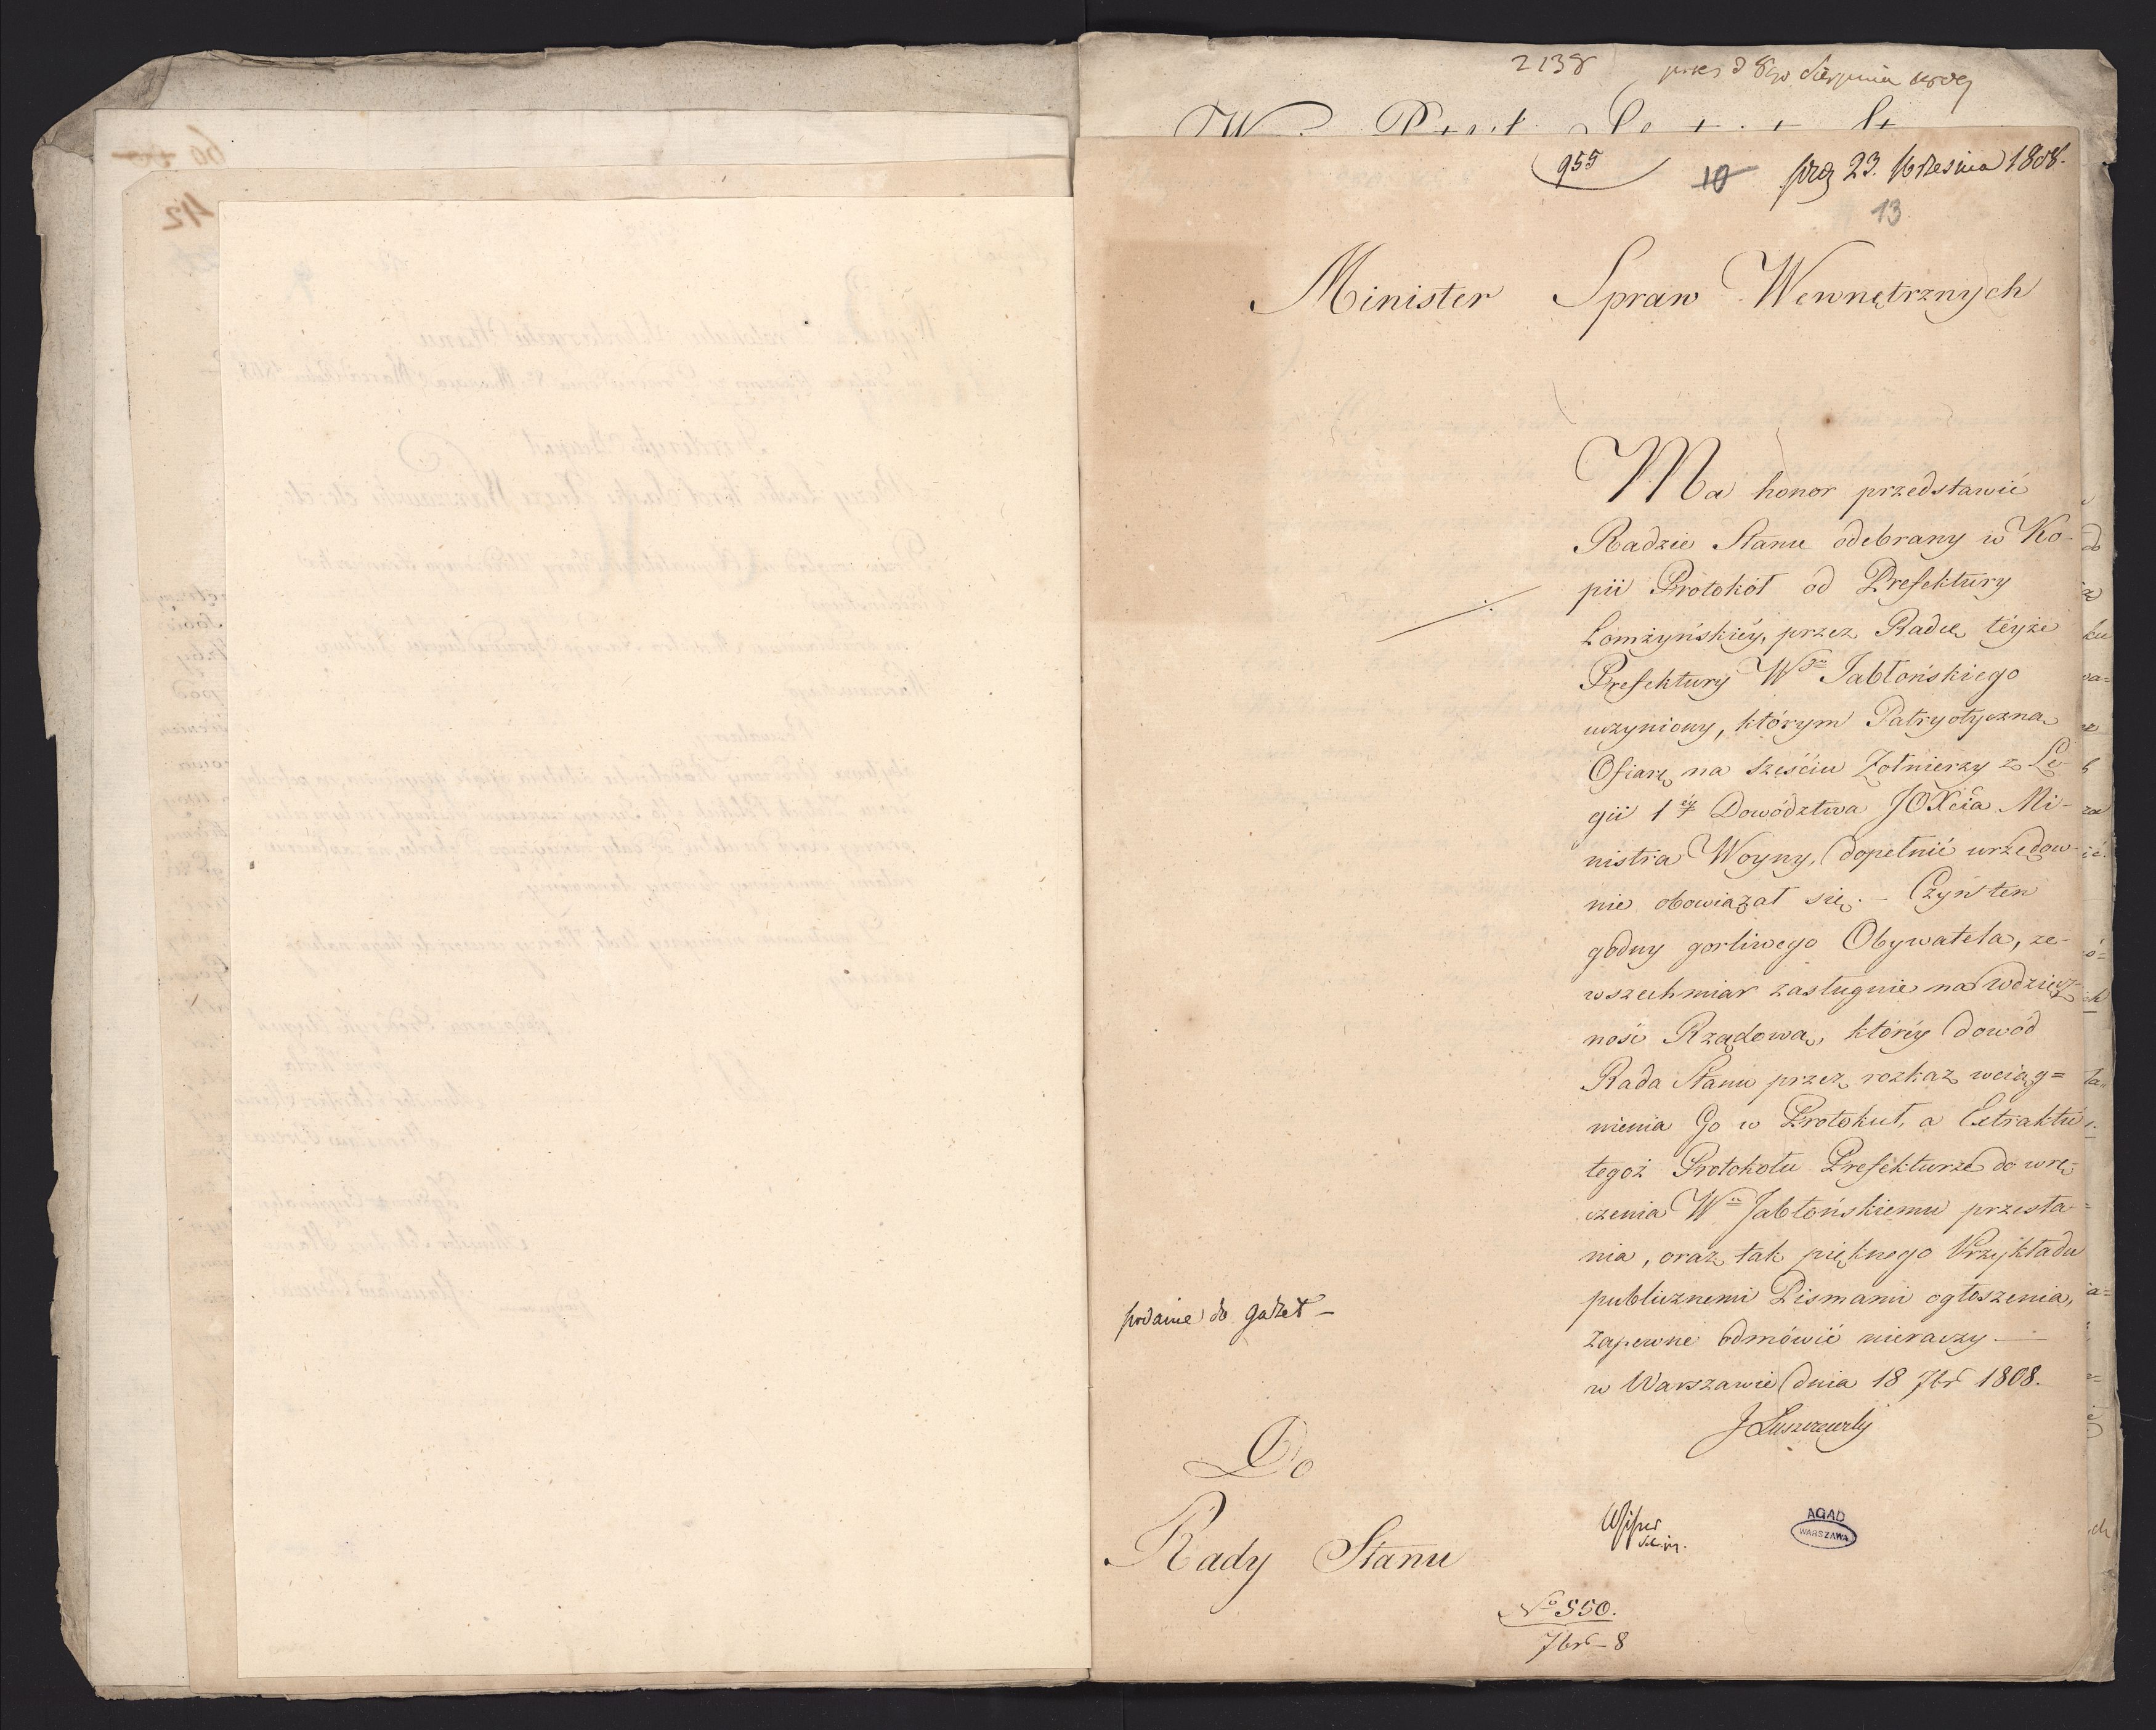 2138
8go Sierpnia
955 10 prez 23. Września 1808.
13
Minister Spraw Wewnętrznych
Ma honor przedstawić
Radzie Stanu odebrany w Ko-
pii Protokół od Prefektury
Łomżyńskiéy, przez Radcę téyże
Prefektury Wgo Jabłońskiego
uczyniony, którym Patryotyczną
Ofiarę na sześciu Żołnierzy z Le-
gii 1éy Dowództwa JOXcia Mi-
nistra Woyny, dopełnić urzędow-
nie obowiązał się. - Czyn ten
godny gorliwego Obywatela, ze-
wszechmiar zasługuie na wdzięcz-
ność Rządową, któréy dowód
Rada Stanu przez rozkaz wciąg=
nienia Go w Protokuł, a Extraktu
tegoż Protokołu Prefekturze do wrę-
czenia Wu Jabłońskiemu przesła-
nia, oraz tak pięknego Przykładu
publicznemi Pismami ogłoszenia,
zapewne odmówić nieraczy. —
w Warszawie dnia 18 7br 1808.
J Łuszczewski
podanie do gazet -
Do
Rady Stanu
AGAD
WARSZAWA
No 550.
7br - 8